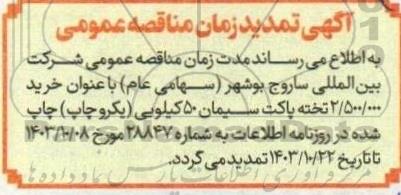 آگهی تمدید زمان مناقصه عمومی
به اطلاع می رساند مدت زمان مناقصه عمومی شرکت
بین المللی ساروج بوشهر (سهامی عام) با عنوان خرید
۲/۵۰۰/۰۰۰ تخته پاکت سیمان ۵۰ کیلویی (یکرو چاپ) چاپ
شده در روزنامه اطلاعات به شماره ۲۸۸۴۷ مورخ ۱۴۰۳/۱۰/۰۸
تا تاریخ ۱۴۰۳/۱۰/۲۲ تمدید می گردد.